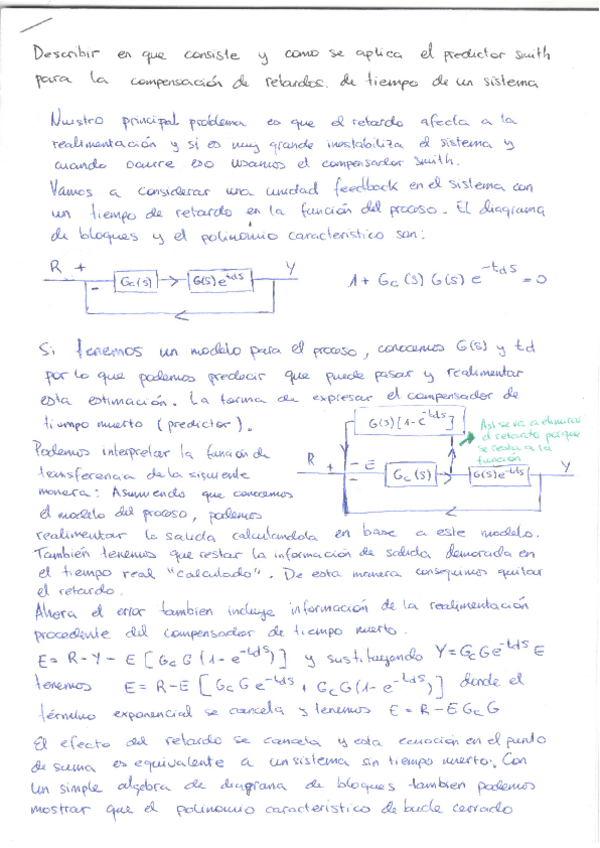 Describir en que consiste y como se aplica el predictor smith
para la compensación de retardos de tiempo de un sistema
Nuestro principal problema es que el retardo afecta a la
realimentación y si es muy grande inestabiliza el sistema y
cuando ocurre eso usamos el compensador smith.
Vamos a considerar una unidad feedback en el sistema con
un tiempo de retardo en la función del proceso. El diagrama
de bloques y el polinomio caracteristico son:
R + - Gc(s) G(s)e^-tds Y 1 + Gc(s) G(s) e^-tds = 0
Si tenemos un modelo para el proceso, conocemos G(s) y td
por lo que podemos predecir que puede pasar y realimentar
esta estimación. La forma de expresar el compensador de
tiempo muerto (predictor).
G(s)[1-e^-tds]
Así se va a eliminar
el retardo porque
se resta a la
función
R + - - E Gc(s) G(s)e^-tds Y
Podemos interpretar la función de
transferencia de la siguiente
manera: Asumiendo que conocemos
el modelo del proceso, podemos
realimentar la salida calculandola en base a este modelo.
También tenemos que restar la información de salida demorada en
el tiempo real "calculado". De esta manera conseguimos quitar
el retardo.
Ahora el error tambien incluye información de la realimentación
procedente del compensador de tiempo muerto.
E = R - Y - E [GcG (1 - e^-tds)] y sustituyendo Y = GcGe^-tds E
tenemos E = R - E [GcG e^-tds + GcG(1 - e^-tds)] donde el
término exponencial se cancela y tenemos E = R - E GcG
El efecto del retardo se cancela y esta ecuación en el punto
de suma es equivalente a un sistema sin tiempo muerto. Con
un simple algebra de diagrama de bloques tambien podemos
mostrar que el polinomio caracteristico de bucle cerrado